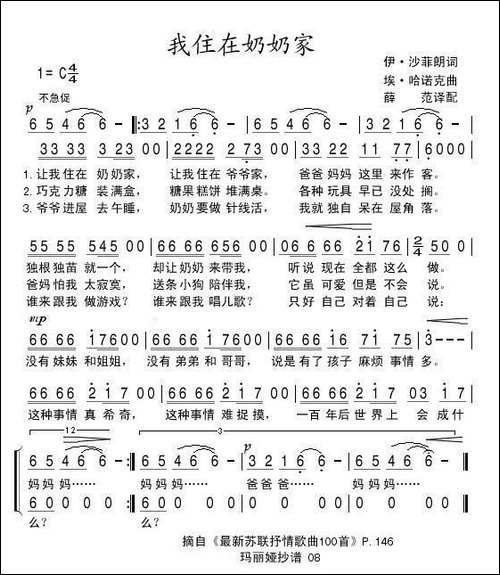 我住在奶奶家
1=C 4/4
伊·沙菲朗词
埃·哈诺克曲
薛 范译配
不急促
p
6 5 4 6 6 - :3 2 1 6 6 - 6 5 4 6 6 - 3 2 1 6 6 -
33 33 23 00 2222 2730 33 33 22 77 6000
1. 让我住在 奶奶家， 让我住在 爷爷家， 爸爸 妈妈 这里 来作 客。
2. 巧克力糖 装满盒， 糖果糕饼 堆满桌。 各种 玩具 早已 没处 搁。
3. 爷爷进屋 去午睡， 奶奶要做 针线活， 我就 独自 呆在 屋角 落。
55 55 545 00 66 66 656 00 06 6 66 21 76 2/4 50 0
独根 独苗 就一个， 却让 奶奶 来带我， 听说 现在 全都 这么 做。
爸妈 怕我 太寂寞， 送条 小狗 陪伴我， 它虽 可爱 但是 不会 说。
谁来 跟我 做游戏？ 谁来 跟我 唱儿歌？ 只好 自己 对着 自己 说：
mp
66 66 17600 66 66 17600 66 66 4 2 1 7 65 3---
没有 妹妹 和姐姐， 没有 弟弟 和 哥哥， 说是 有了 孩子 麻烦 事情 多。
66 66 21700 66 66 21700 66 66 21 7 03 17
这种 事情 真 希奇， 这种 事情 难 捉摸， 一百 年后 世界 上 会 成什
12
3
p
6 5 4 6 6 - :6 5 4 6 6 - 3 2 1 6 6 - 6 5 4 6 6 -
妈妈妈…… 妈妈妈…… 爸爸爸…… 妈妈妈……
6 0 0 0 :6 0 0 0 0 0 0 0 0 0 0 0
么？ 么？
摘自《最新苏联抒情歌曲100首》P. 146
玛丽娅抄谱 08